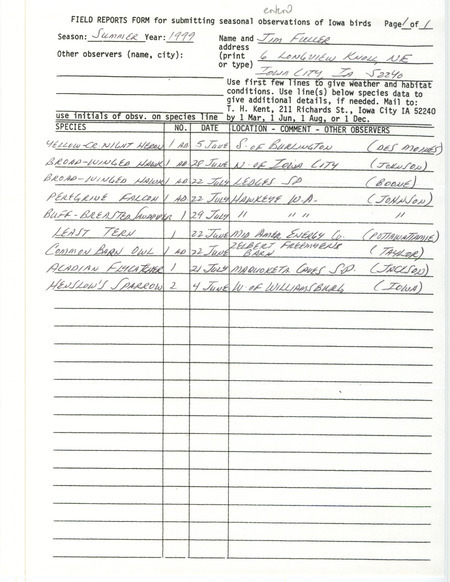 entered
FIELD REPORTS FORM for submitting seasonal observations of Iowa birds Page 1 of 1
Season: Summer Year: 1999 Name and Jim Fuller
address
Other observers (name, city): (print 6 Longview Knoll, NE
or type) Iowa City IA 52240
Use first few lines to give weather and habitat
conditions. Use line(s) below species data to
give additional details, if needed. Mail to:
T. H. Kent, 211 Richards St., Iowa City IA 52240
use initials of obsv. on species line by 1 Mar, 1 Jun, 1 Aug, or 1 Dec.
SPECIES NO. DATE LOCATION - COMMENT - OTHER OBSERVERS
Yellow-cr Night Heron 1 AD 5 June S. of Burlington (Des Moines)
Broad-winged Hawk 1 AD 28 June N. of Iowa City (Johnson)
Broad-winged Hawk 1 AD 22 July Ledges SP (Boone)
Peregrine Falcon 1 AD 22 July Hawkeye W.A. (Johnson)
Buff-breasted Sandpiper 1 29 July " " " "
Least Tern 1 22 June Mid Amer. Energy Co. (Pottawattamie)
Common Barn Owl 1 AD 22 June Barn (Taylor)
Acadian Flycatcher 1 21 July Maquoketa Caves S.P. (Jackson)
Henslow's Sparrow 2 4 June W. of Williamsburg (Iowa)